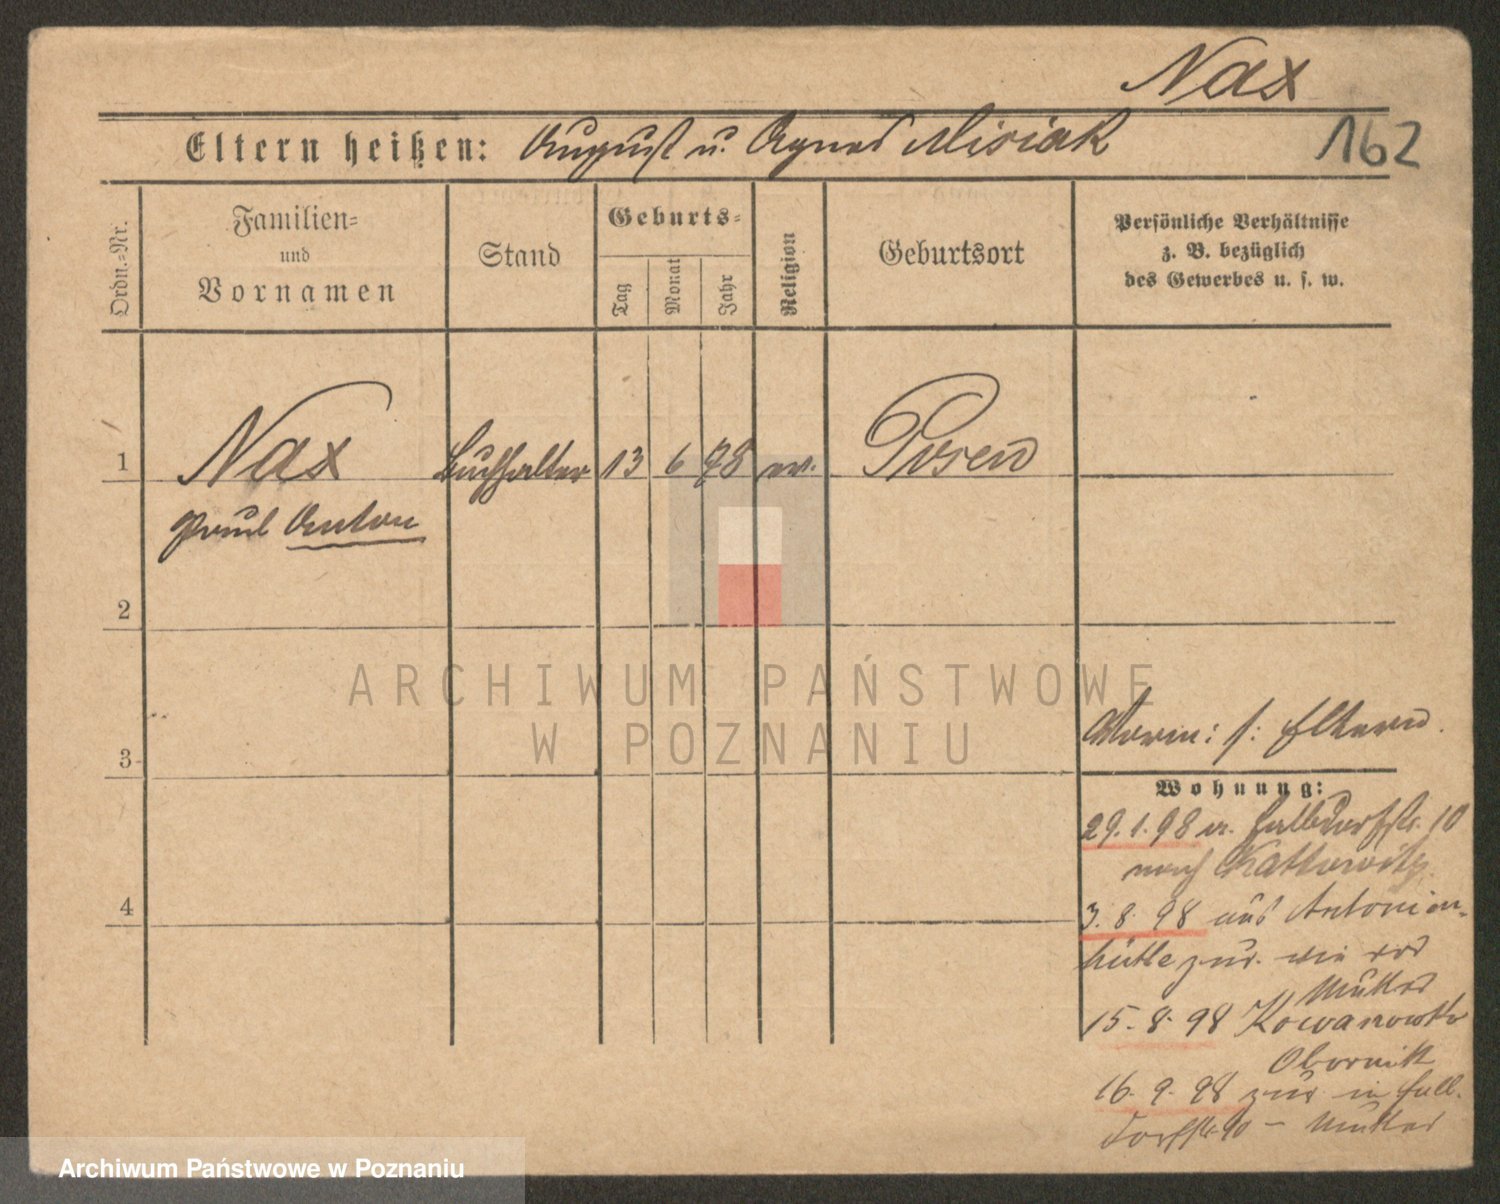 Nax
162
Eltern heißen: August u. Agnes Misiak
Ordn.-Nr.
Familien-
und
Vornamen
Stand
Geburts-
Tag
Monat
Jahr
Religion
Geburtsort
Persönliche Verhältnisse
z. B. bezüglich
des Gewerbes u. s. w.
1 Nax Buchhalter 13 6 78 ev. Posen
Paul Anton
2
3
4
ARCHIWUM PAŃSTWOWE
W POZNANIU
s: Eltern.
Wohnung:
29.1.98 v. Halbdorfstr. 10
nach Kattowitz.
3.8.98 aus Antonien-
hütte zur.
Mutter
15.8.98 Kowanowko
Obornik
16.9.98 zur in Halb-
dorfstr. 10 – Mutter
Archiwum Państwowe w Poznaniu